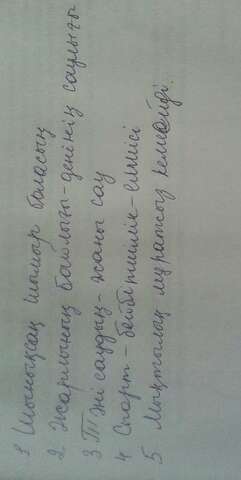 1 Шынықсаң шымыр боласың
2 Жарлының байлығы - денінің саулығы
3 Тәні саудың - жаны сау
4 Спорт - бейбітшілік елшісі
5 Мықтылық мұратсыз келмейді.